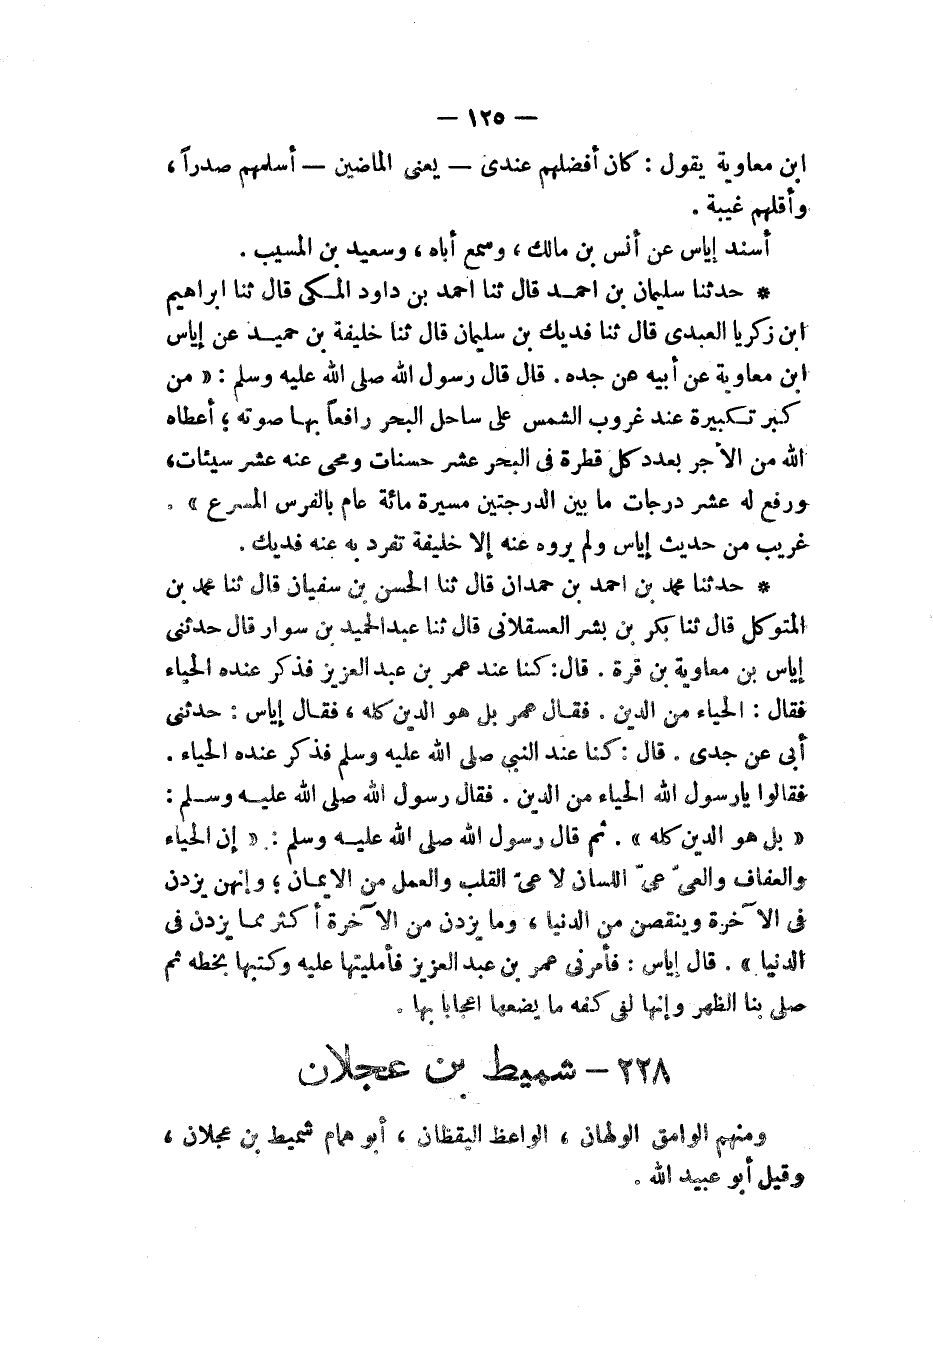 — ١٢٥ —
ابن معاوية يقول : كان أفضلهم عندى — يعنى الماضين — أسلمهم صدراً ،
وأقلهم غيبة .
أسند إياس عن أنس بن مالك ، وسمع أباه ، وسعيد بن المسيب .
* حدثنا سليمان بن احمد قال ثنا احمد بن داود المكى قال ثنا ابراهيم
ابن زكريا العبدى قال ثنا فديك بن سليمان قال ثنا خليفة بن حميد عن إياس
ابن معاوية عن أبيه عن جده . قال قال رسول الله صلى الله عليه وسلم : « من
كبر تكبيرة عند غروب الشمس على ساحل البحر رافعاً بها صوته ؛ أعطاه
الله من الأجر بعدد كل قطرة فى البحر عشر حسنات ومحى عنه عشر سيئات ،
ورفع له عشر درجات ما بين الدرجتين مسيرة مائة عام بالفرس المسرع » .
غريب من حديث إياس ولم يروه عنه إلا خليفة تفرد به عنه فديك .
* حدثنا محمد بن احمد بن حمدان قال ثنا الحسن بن سفيان قال ثنا محمد بن
المتوكل قال ثنا بكر بن بشر العسقلانى قال ثنا عبد الحميد بن سوار قال حدثنى
إياس بن معاوية بن قرة . قال : كنا عند عمر بن عبد العزيز فذكر عنده الحياء
فقال : الحياء من الدين . فقال عمر بل هو الدين كله ، فقال إياس : حدثنى
أبى عن جدى . قال : كنا عند النبي صلى الله عليه وسلم فذكر عنده الحياء .
فقالوا يارسول الله الحياء من الدين . فقال رسول الله صلى الله عليه وسلم :
« بل هو الدين كله » . ثم قال رسول الله صلى الله عليه وسلم : « إن الحياء
والعفاف والعىّ عىّ اللسان لا عىّ القلب والعمل من الايمان ؛ وإنهن يزدن
فى الآخرة وينقصن من الدنيا ، وما يزدن من الآخرة أكثر مما يزدن فى
الدنيا » . قال إياس : فأمرنى عمر بن عبد العزيز فأمليتها عليه وكتبها بخطه ثم
صلى بنا الظهر وإنها لفى كفه ما يضعها اعجابا بها .
٢٢٨ — شميط بن عجلان
ومنهم الوامق الولهان ، الواعظ اليقظان ، أبو همام شميط بن عجلان ،
وقيل أبو عبيد الله .